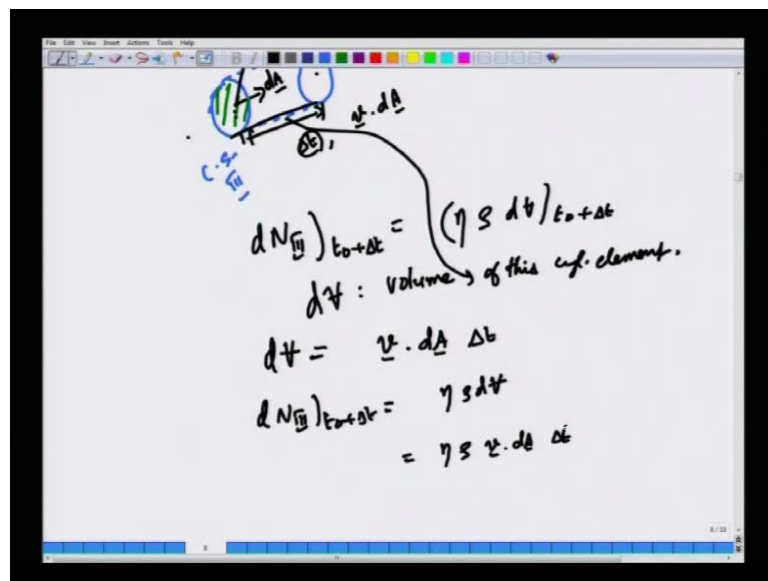 File Edit View Insert Actions Tools Help
dA
Δt, v . dA
C.S. III
dN III ) t₀+Δt = (η ρ dV) t₀+Δt
dV : volume of this cyl. element.
dV = v . dA Δt
dN III ) t₀+Δt = η ρ dV
= η ρ v . dA Δt
8